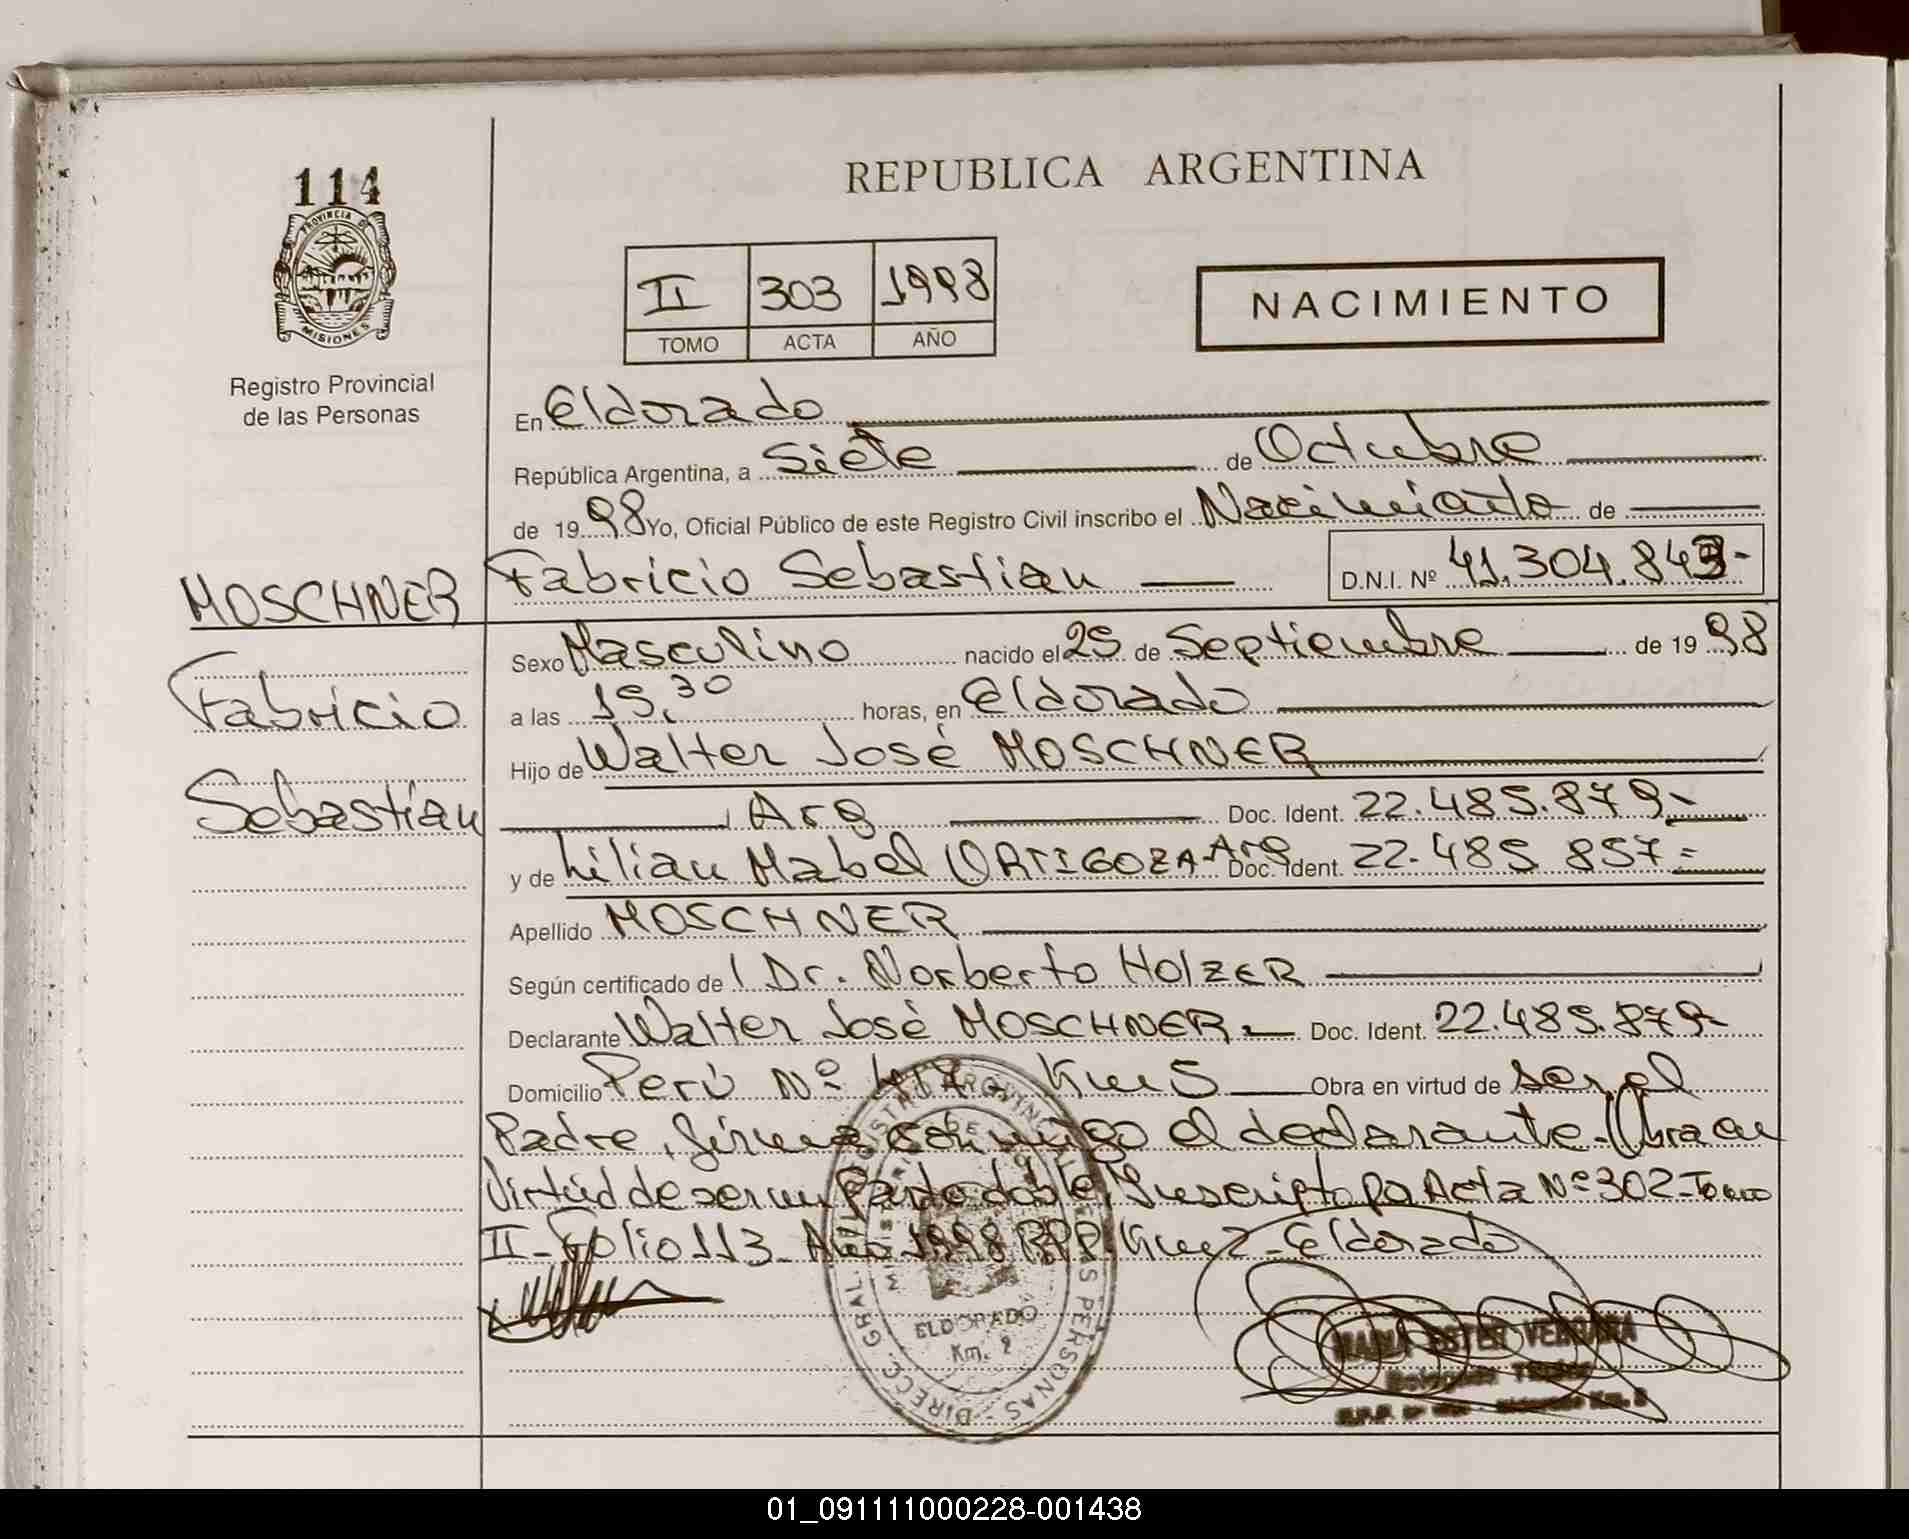 114
PROVINCIA DE
MISIONES
Registro Provincial
de las Personas
REPUBLICA ARGENTINA
II 303 1998
TOMO ACTA AÑO
NACIMIENTO
En Eldorado
República Argentina, a Siete de Octubre
de 1998 Yo, Oficial Público de este Registro Civil inscribo el Nacimiento de
MOSCHNER Fabricio Sebastian D.N.I. Nº 41.304.843-
Sexo Masculino nacido el 25 de Septiembre de 1998
Fabricio
a las 15,30 horas, en Eldorado
Hijo de Walter José MOSCHNER
Sebastian Arg Doc. Ident. 22.485.879-
y de Lilian Mabel ORTIGOZA-Arg Doc. Ident. 22.485 857=
Apellido MOSCHNER
Según certificado de Dr. Norberto HOlZER
Declarante Walter José MOSCHNER Doc. Ident. 22.485.879-
Domicilio Perú Nº 417- Km 5 Obra en virtud de ser el
Padre, firma conmigo el declarante-Obra en
Virtúd de ser un Parto doble, Inscripto po Acta Nº 302-Tomo
II-Folio 113-Año 1998 RPP Km 2-Eldorado
DIRECC. GRAL. REGISTRO PROVINCIAL DE LAS PERSONAS
ELDORADO
Km. 2
MARIA ESTER VERGARA
01_091111000228-001438